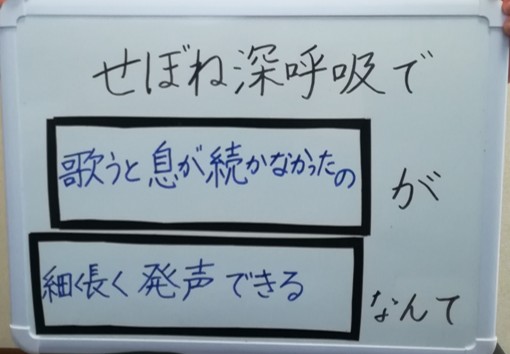 せぼね深呼吸で
歌うと息が続かなかったの が
細く長く発声できる なんて